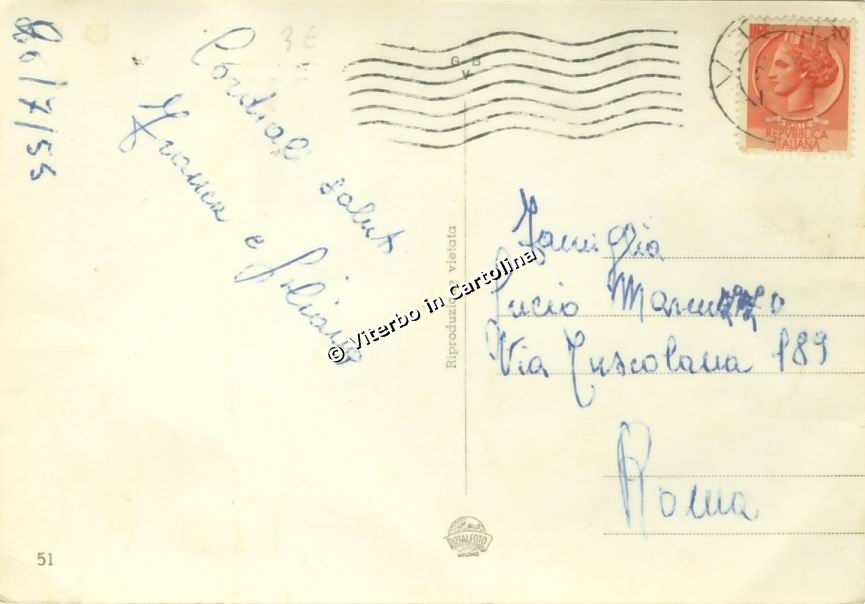 26/7/55
3 €
Cordiali saluti
Franca e Giuliana
G B
V
LIRE 10
POSTE
REPVBBLICA
ITALIANA
Riproduzione vietata
© Viterbo in Cartolina
Famiglia
Lucio
Via Tuscolana 189
Roma
ROTALFOTO
MILANO
51